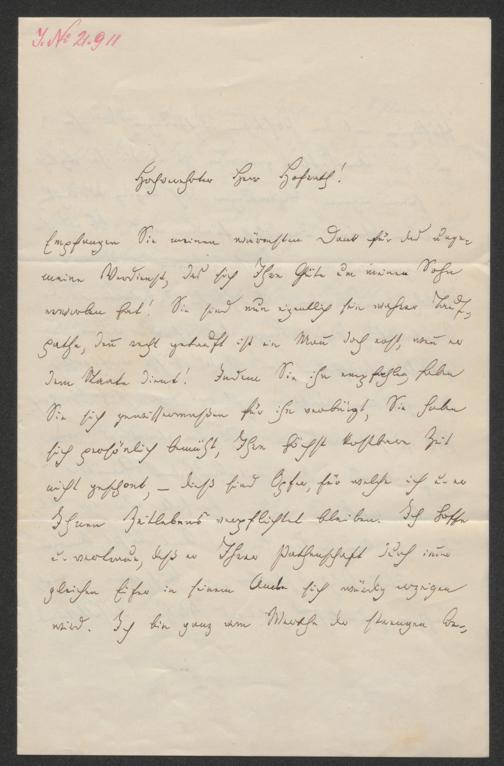 J. N° 21.911
Hochverehrter Herr Hofrath!
Empfangen Sie meinen wärmsten Dank für das unge-
meine Verdienst, das sich Ihre Güte um meinen Sohn
erworben hat! Sie sind nun eigentlich sein wahrer Tauf-
pathe, denn recht getauft ist ein Mann doch erst, wenn er
dem Staate dient! Indem Sie ihn empfohlen, haben
Sie sich gewissermaßen für ihn verbürgt, Sie haben
sich persönlich bemüht, Ihre höchst kostbare Zeit
nicht geschont, – dieß sind Opfer, für welche ich u. er
Ihnen Zeitlebens verpflichtet bleiben. Ich hoffe
u. vertraue, daß er Ihrer Pathenschaft durch immer
gleichen Eifer in seinem Amte sich würdig erzeigen
wird. Ich bin ganz vom Werthe der strengen